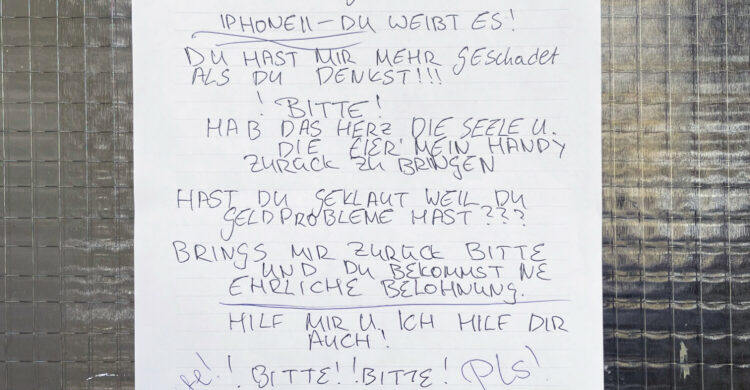 IPHONE 11 – DU WEIßT ES!
DU HAST MIR MEHR GESCHADET
ALS DU DENKST!!!
! BITTE!
HAB DAS HERZ DIE SEELE U.
DIE EIER MEIN HANDY
ZURÜCK ZU BRINGEN
HAST DU GEKLAUT WEIL DU
GELDPROBLEME HAST???
BRINGS MIR ZURÜCK BITTE
UND DU BEKOMMST NE
EHRLICHE BELOHNUNG.
HILF MIR U. ICH HILF DIR
AUCH!
! BITTE! ! BITTE! Pls!